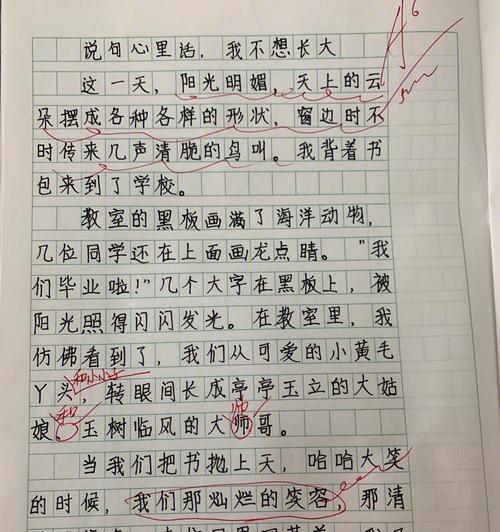 说句心里话,我不想长大
这一天,阳光明媚,天上的云
朵摆成各种各样的形状,窗边时不
时传来几声清脆的鸟叫。我背着书
包来到了学校。
教室的黑板画满了海洋动物,
几位同学还在上面画龙点睛。“我
们毕业啦!”几个大字在黑板上,被
阳光照得闪闪发光。在教室里,我
仿佛看到了,我们从可爱的小黄毛
和小小子
丫头,转眼间长成亭亭玉立的大姑
和
帅
娘,玉树临风的大师哥。
当我们把书抛上天,哈哈大笑
的时候,我们那灿烂的笑容,那清